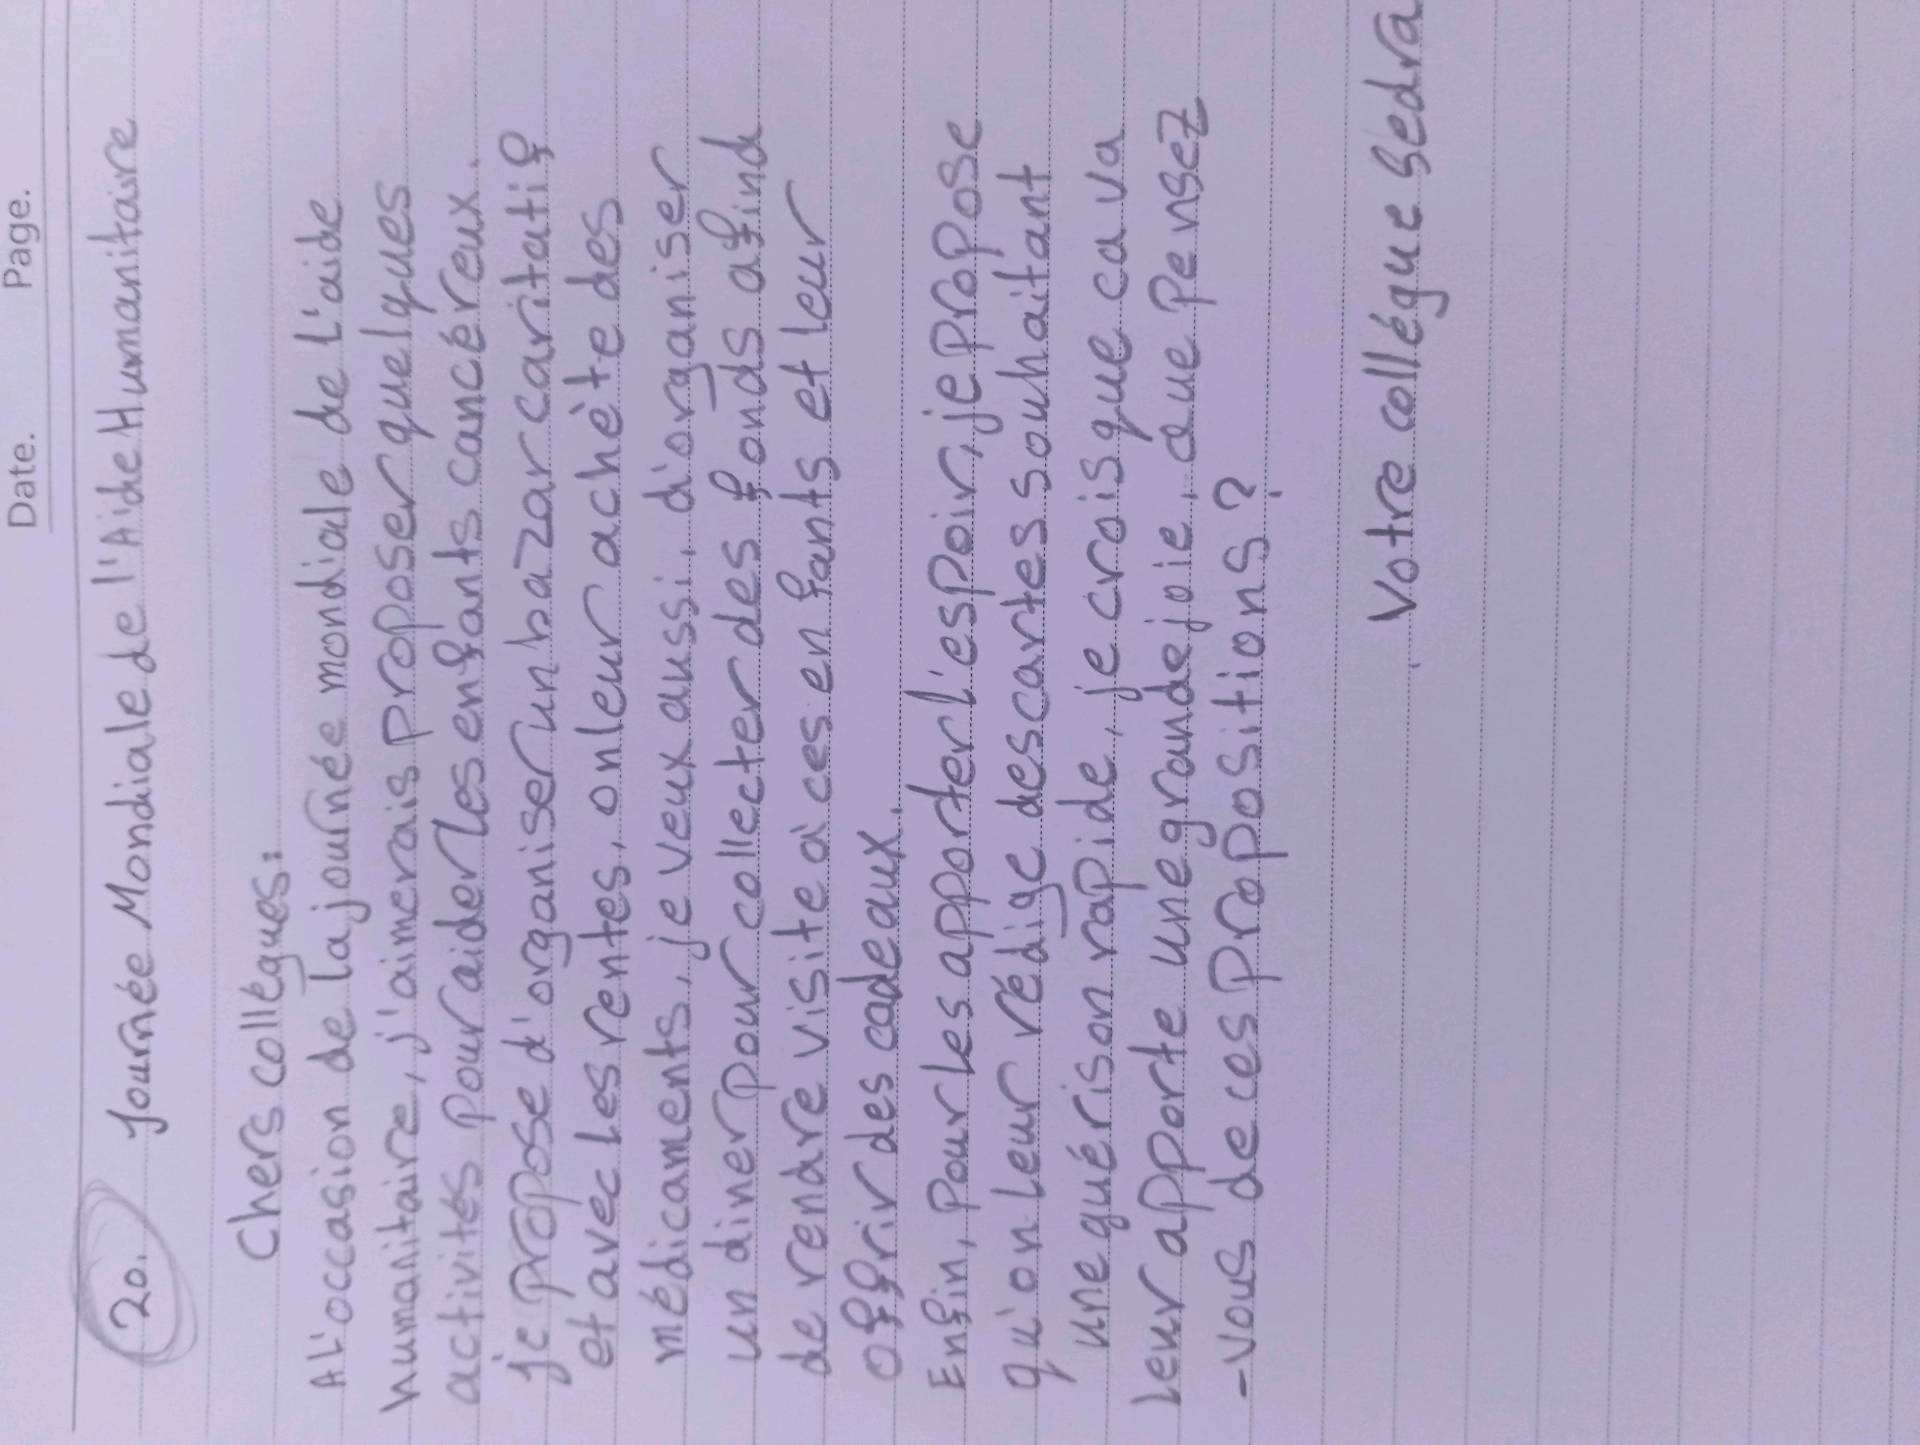 Date. Page.
20. Journée Mondiale de l'Aide Humanitaire
Chers collégues:
A L'occasion de la journée mondiale de L'aide
humanitaire, j'aimerais proposer quelques
activités pour aider les enfants cancéreux.
je propose d'organiser un bazar caritatif
et avec les rentes, on leur achète des
médicaments, je veux aussi, d'organiser
un diner pour collecter des fonds afin d
de rendre visite à ces enfants et leur
offrir des cadeaux.
Enfin, pour les apporter l'espoir, je propose
qu'on leur rédige des cartes souhaitant
une guérison rapide, je crois que ca va
leur apporte une grande joie, que pensez
-vous de ces propositions?
Votre collégue Sedra